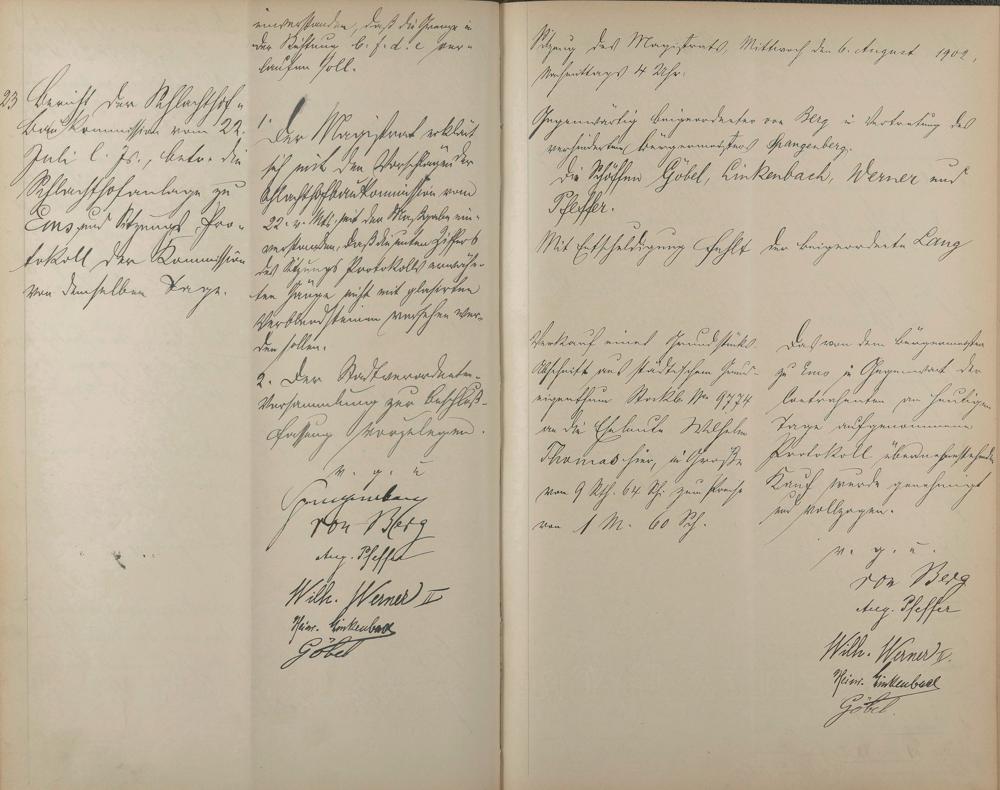 einverstanden, daß die Grenze in
der Richtung b. f. d. c ver-
laufen soll.
23
Bericht der Schlachthof-
bau Kommission vom 22.
Juli l. Js., betr. die
Schlachthofanlage zu
Ems und Sitzungs Pro-
tokoll der Kommission
von demselben Tage.
1. Der Magistrat erklärt
sich mit den Vorschlägen der
Schlachthofbaukommission vom
22. v. Mts. mit der Maßgabe ein-
verstanden, daß die unter Ziffer 6
des Sitzungs Protokolls erwähn-
ten Gänge nicht mit glasirten
Verblendsteinen versehen wer-
den sollen.
2. Der Stadtverordneten-
Versammlung zur Beschluß-
fassung vorgelegen.
v. g. u.
Spangenberg
von Berg
Aug. Pfeffer
Wilh. Werner II
Heinr. Linkenbach
Göbel
Sitzung des Magistrats, Mittwoch den 6. August 1902,
Nachmittags 4 Uhr.
Gegenwärtig Beigeordneter von Berg in Vertretung des
verhinderten Bürgermeisters Spangenberg.
Die Schöffen Göbel, Linkenbach, Werner und
Pfeffer.
Mit Entschuldigung fehlt der Beigeordnete Lang
Verkauf eines Grundstücks
Abschnitt aus städtischem Grund-
eigenthum Stockb. No 9774
an die Eheleute Wilhelm
Thomas hier, in Größe
von 9 Rth. 64 Sch. zum Preise
von 1 M. 60 Pf.
Das von dem Bürgermeister
zu Ems in Gegenwart der
Contrahenten am heutigen
Tage aufgenommene
Protokoll über nebenstehenden
Kauf wurde genehmigt
und vollzogen.
v. g. u.
von Berg
Aug. Pfeffer
Wilh. Werner II.
Heinr. Linkenbach
Göbel.